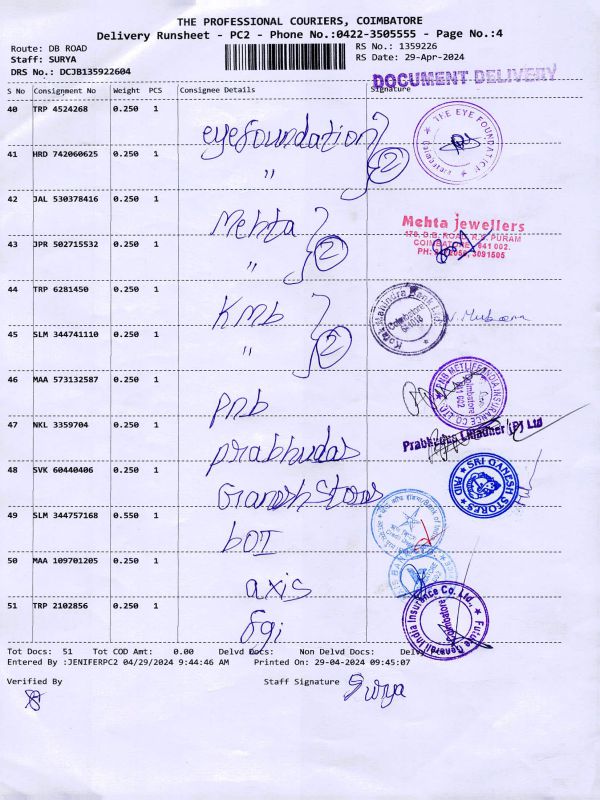 THE PROFESSIONAL COURIERS, COIMBATORE
Delivery Runsheet - PC2 - Phone No.:0422-3505555 - Page No.:4
Route: DB ROAD RS No.: 1359226
Staff: SURYA RS Date: 29-Apr-2024
DRS No.: DCJB135922604
DOCUMENT DELIVERY
S No Consignment No Weight PCS Consignee Details Signature
40 TRP 4524268 0.250 1
eyefoundation
THE EYE FOUNDATION
41 HRD 742060625 0.250 1
" 2
42 JAL 530378416 0.250 1
Mehta
Mehta jewellers
COIMBATORE 641 002.
43 JPR 502715532 0.250 1
" 2
44 TRP 6281450 0.250 1
Kmb
Kotak Mahindra Bank
Coimbatore
45 SLM 344741110 0.250 1
" 2
46 MAA 573132587 0.250 1
pnb
PNB METLIFE INDIA INSURANCE CO. LTD.
Coimbatore
641 002
47 NKL 3359704 0.250 1
prabhudas
Prabhudas Lilladher (P) Ltd
48 SVK 60440406 0.250 1
Ganesh Stores
SRI GANESH STORES
PAID
49 SLM 344757168 0.550 1
boI
50 MAA 109701205 0.250 1
axis
51 TRP 2102856 0.250 1
fgi
Future Generali India Insurance Co. Ltd.,
Coimbatore
Tot Docs: 51 Tot COD Amt: 0.00 Delvd Docs: Non Delvd Docs:
Entered By :JENIFERPC2 04/29/2024 9:44:46 AM Printed On: 29-04-2024 09:45:07
Verified By Staff Signature Surya